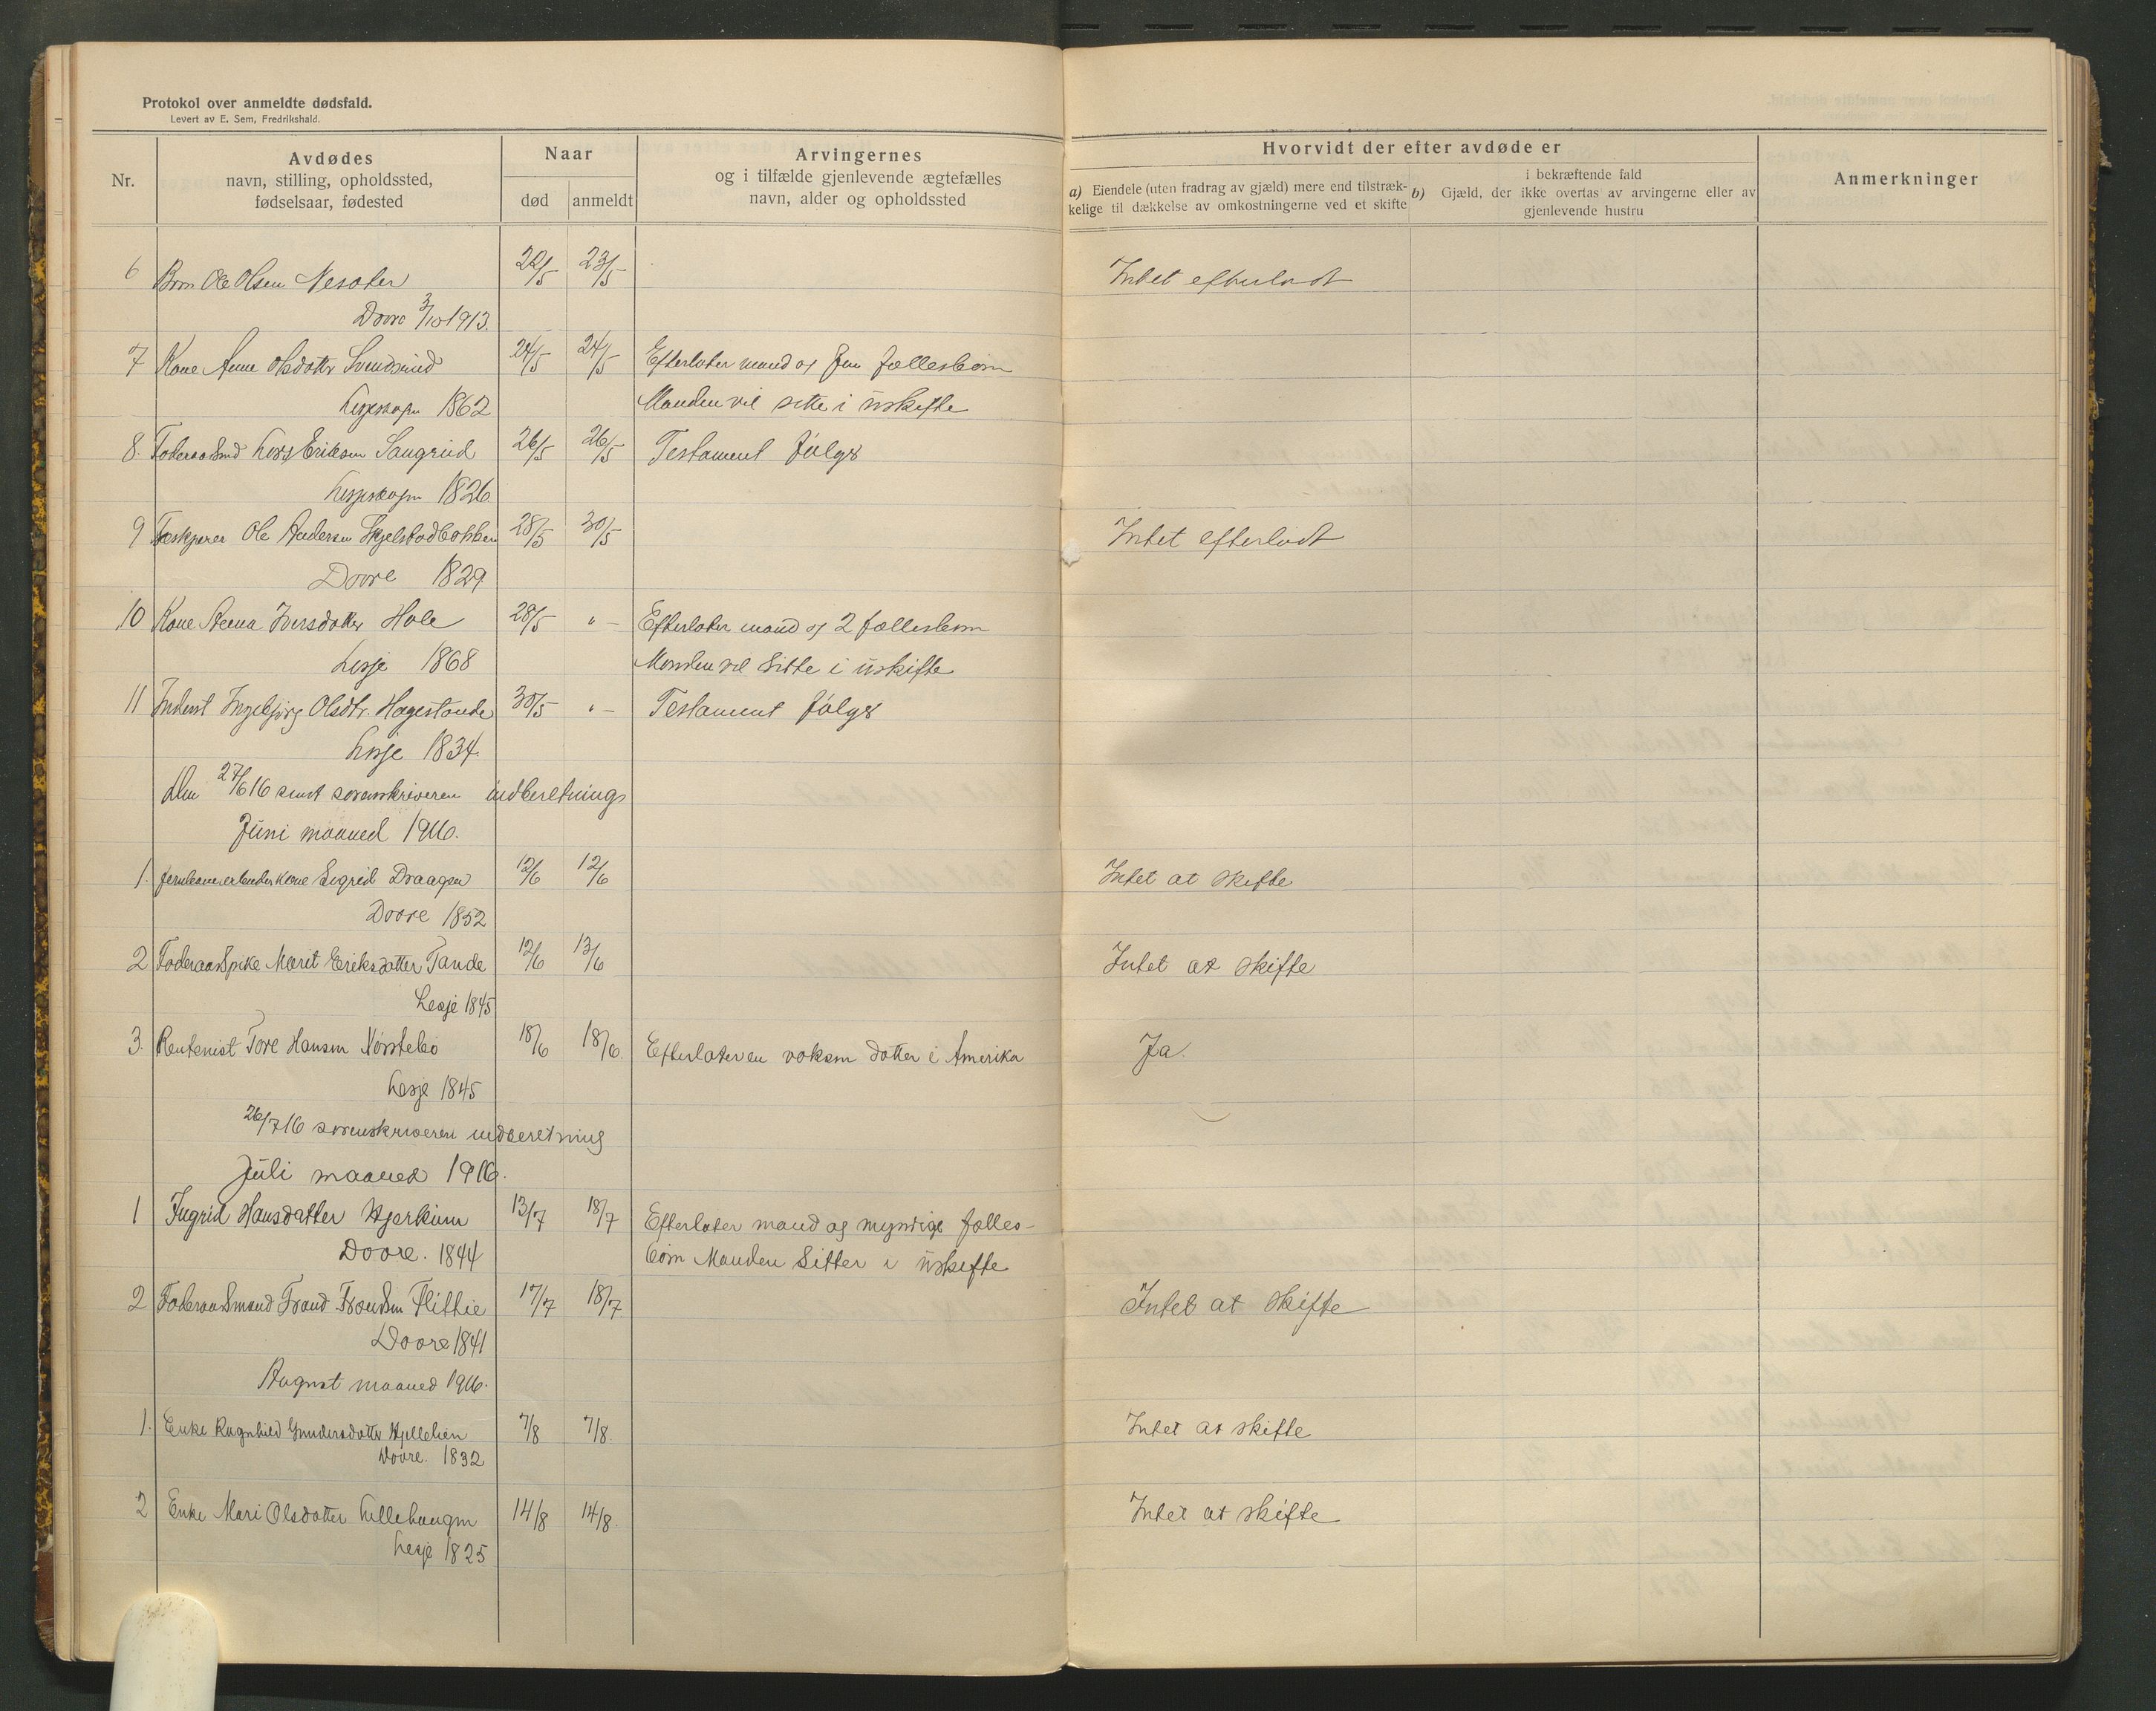 Protokol over anmeldte dødsfald.
Levert av E. Sem, Fredrikshald.
Nr.
Avdødes
navn, stilling, opholdssted,
fødselsaar, fødested
Naar
død
anmeldt
Arvingernes
og i tilfælde gjenlevende ægtefælles
navn, alder og opholdssted
Hvorvidt der efter avdøde er
a) Eiendele (uten fradrag av gjæld) mere end tilstræk-
kelige til dækkelse av omkostningerne ved et skifte
i bekræftende fald
b) Gjæld, der ikke overtas av arvingerne eller av
gjenlevende hustru
Anmerkninger
6 Barn Ole Olsen 22/5 23/5 Intet efterladt
Dovre 3/10 1913.
7 Kone Anne Olsdatter 24/5 24/5 Efterlater mand og fællesbørn
1862 Manden vil sitte i uskifte
8. Eriksen 26/5 26/5 Testament følger
1826
9 Ole Andersen 28/5 30/5 Intet efterladt
Dovre 1829
10 Kone Iversdatter Hole 28/5 " – Efterlater mand og 2 fællesbørn
Lesje 1868 Manden vil sitte i uskifte
11 Inderst Ingebjørg Olsdtr. 30/5 " – Testament følger
Lesje 1834.
Den 27/6 16 sendt sorenskriveren indberetning
Juni maaned 1916.
1. Sigrid 12/6 12/6 Intet at skifte
Dovre 1852
2 Føderaadspike Marit Eriksdatter Tande 12/6 13/6 Intet at skifte
Lesje 1845
3. Rentenist Tore Hansen Nørstebø 18/6 18/6. Efterlater en voksen datter i Amerika Ja.
Lesje 1845
26/7 16 sorenskriveren indberetning
Juli maaned 1916.
1 Ingrid Hansdatter Hjerkinn 13/7 18/7 Efterlater mand og myndige fælles-
Dovre. 1844 børn Manden sitter i uskifte
2 Føderaadsmand 17/7 18/7 Intet at skifte
Dovre 1841
August maaned 1916.
1. Enke Ragnhild 7/8 7/8. Intet at skifte
Dovre. 1832
2 Enke Mari Olsdatter 14/8 14/8. Intet at skifte
Lesje 1825